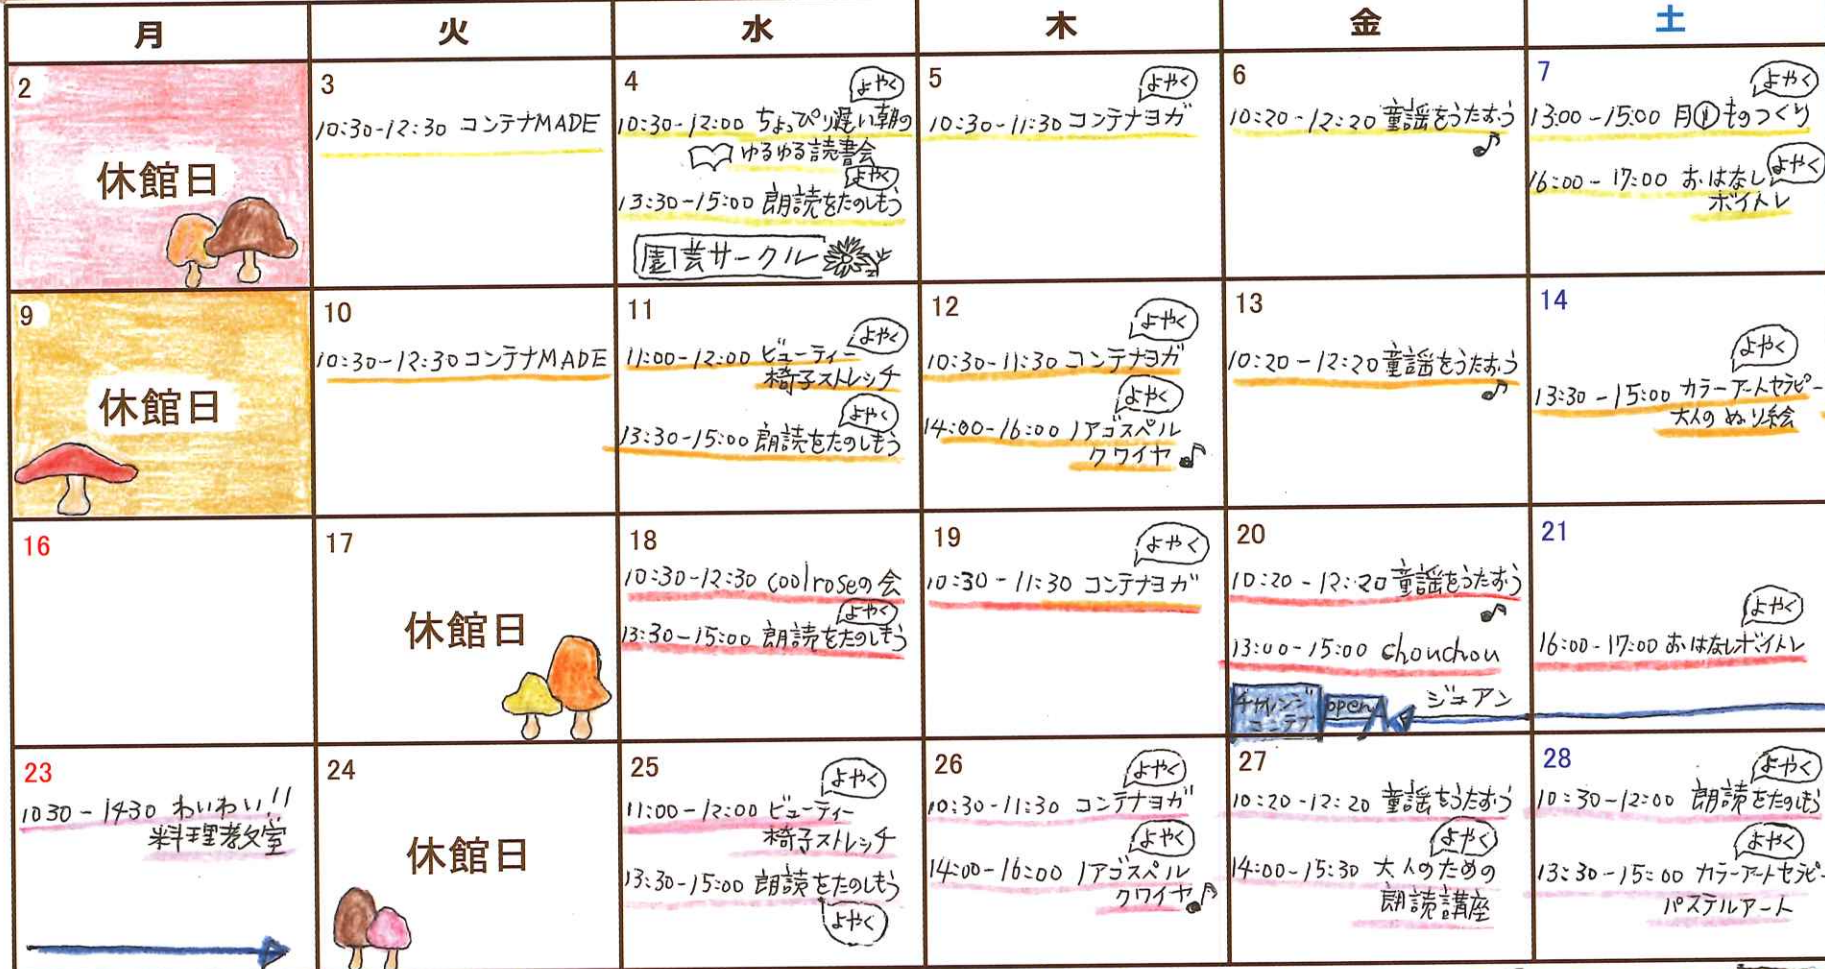 月 火 水 木 金 土
2
休館日
3
10:30-12:30 コンテナMADE
4
よやく
10:30-12:00 ちょっぴり遅い朝の
ゆるゆる読書会
よやく
13:30-15:00 朗読をたのしもう
園芸サークル
5
よやく
10:30-11:30 コンテナヨガ
6
10:20-12:20 童謡をうたおう
7
よやく
13:00-15:00 月1ものつくり
よやく
16:00-17:00 おはなし
ボイトレ
9
休館日
10
10:30-12:30 コンテナMADE
11
よやく
11:00-12:00 ビューティー
椅子ストレッチ
よやく
13:30-15:00 朗読をたのしもう
12
よやく
10:30-11:30 コンテナヨガ
よやく
14:00-16:00 ノアゴスペル
クワイヤ
13
10:20-12:20 童謡をうたおう
14
よやく
13:30-15:00 カラーアートセラピー
大人のぬり絵
16
17
休館日
18
10:30-12:30 coolroseの会
よやく
13:30-15:00 朗読をたのしもう
19
よやく
10:30-11:30 コンテナヨガ
20
10:20-12:20 童謡をうたおう
13:00-15:00 chouchou
チャレンジ
コンテナ
open
ジュアン
21
よやく
16:00-17:00 おはなしボイトレ
23
10 30 - 14 30 わいわい!!
料理教室
24
休館日
25
よやく
11:00-12:00 ビューティー
椅子ストレッチ
13:30-15:00 朗読をたのしもう
よやく
26
よやく
10:30-11:30 コンテナヨガ
よやく
14:00-16:00 ノアゴスペル
クワイヤ
27
10:20-12:20 童謡をうたおう
よやく
14:00-15:30 大人のための
朗読講座
28
よやく
10:30-12:00 朗読をたのしもう
よやく
13:30-15:00 カラーアートセラピー
パステルアート